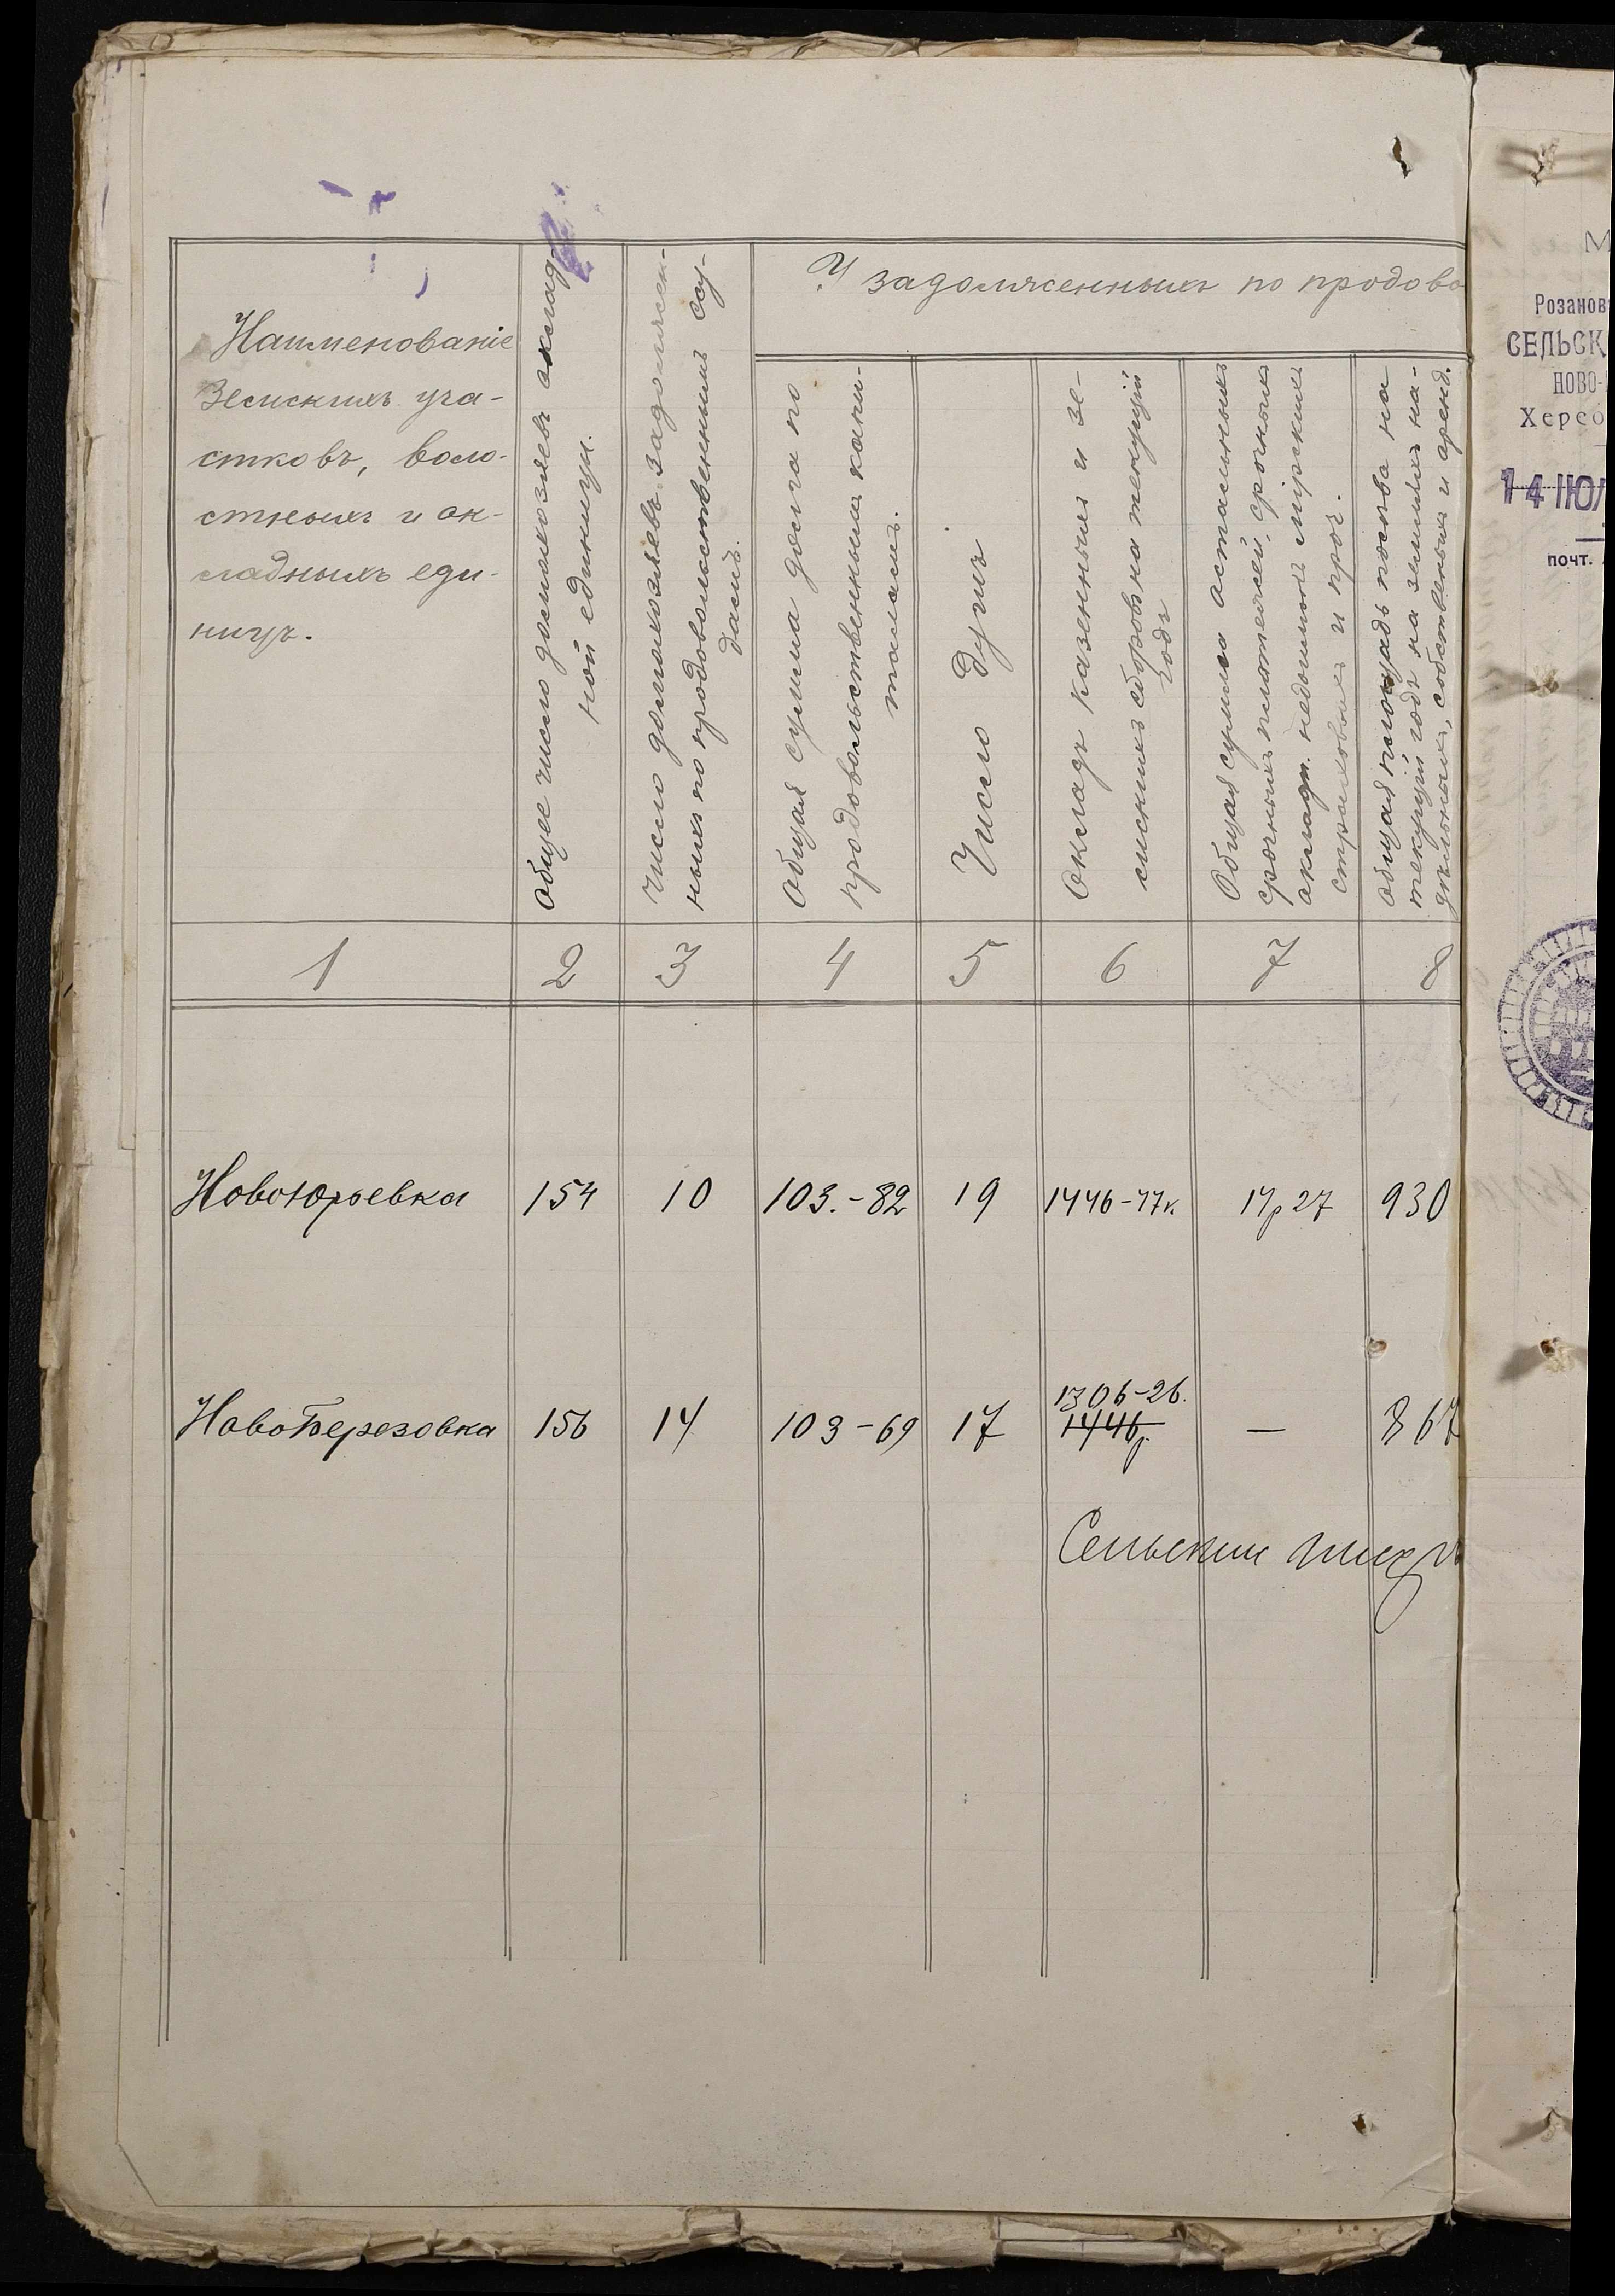 У задолженныхъ по продово
Наименованіе
Земскихъ уча-
стковъ, воло-
стныхъ и ок-
ладныхъ еди-
ницъ.
Общее число домохозяевъ оклад-
ной единицы.
Число домохозяевъ задолжен-
ныхъ по продовольственнымъ ссу-
дамъ.
Общая сумма долга по
продовольственнымъ капи-
таламъ.
Число душъ
Окладъ казенныхъ и зе-
мскихъ сборовъ на текущій
годъ
Общая сумма остальныхъ
срочныхъ платежей, срочныхъ
окладн. недоимокъ мірскихъ
страховыхъ и проч.
Общая площадь посѣва на
текущій годъ на земляхъ на-
дѣльныхъ, собственныхъ и аренд.
1 2 3 4 5 6 7 8
Новоюрьевка 154 10 103.-82 19 1446-77к. 17р27 930
1306-26.
НовоБерезовка 156 14 103-69 17 1446р. — 867
Сельскій писарь
М
Розанов
СЕЛЬСК
НОВО-
Херсо
14 ІЮЛ
почт.